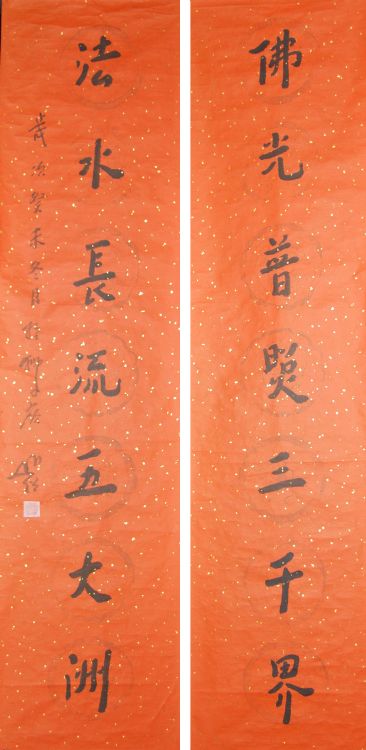 佛光普照三千界
法水長流五大洲
歲次癸未冬月於